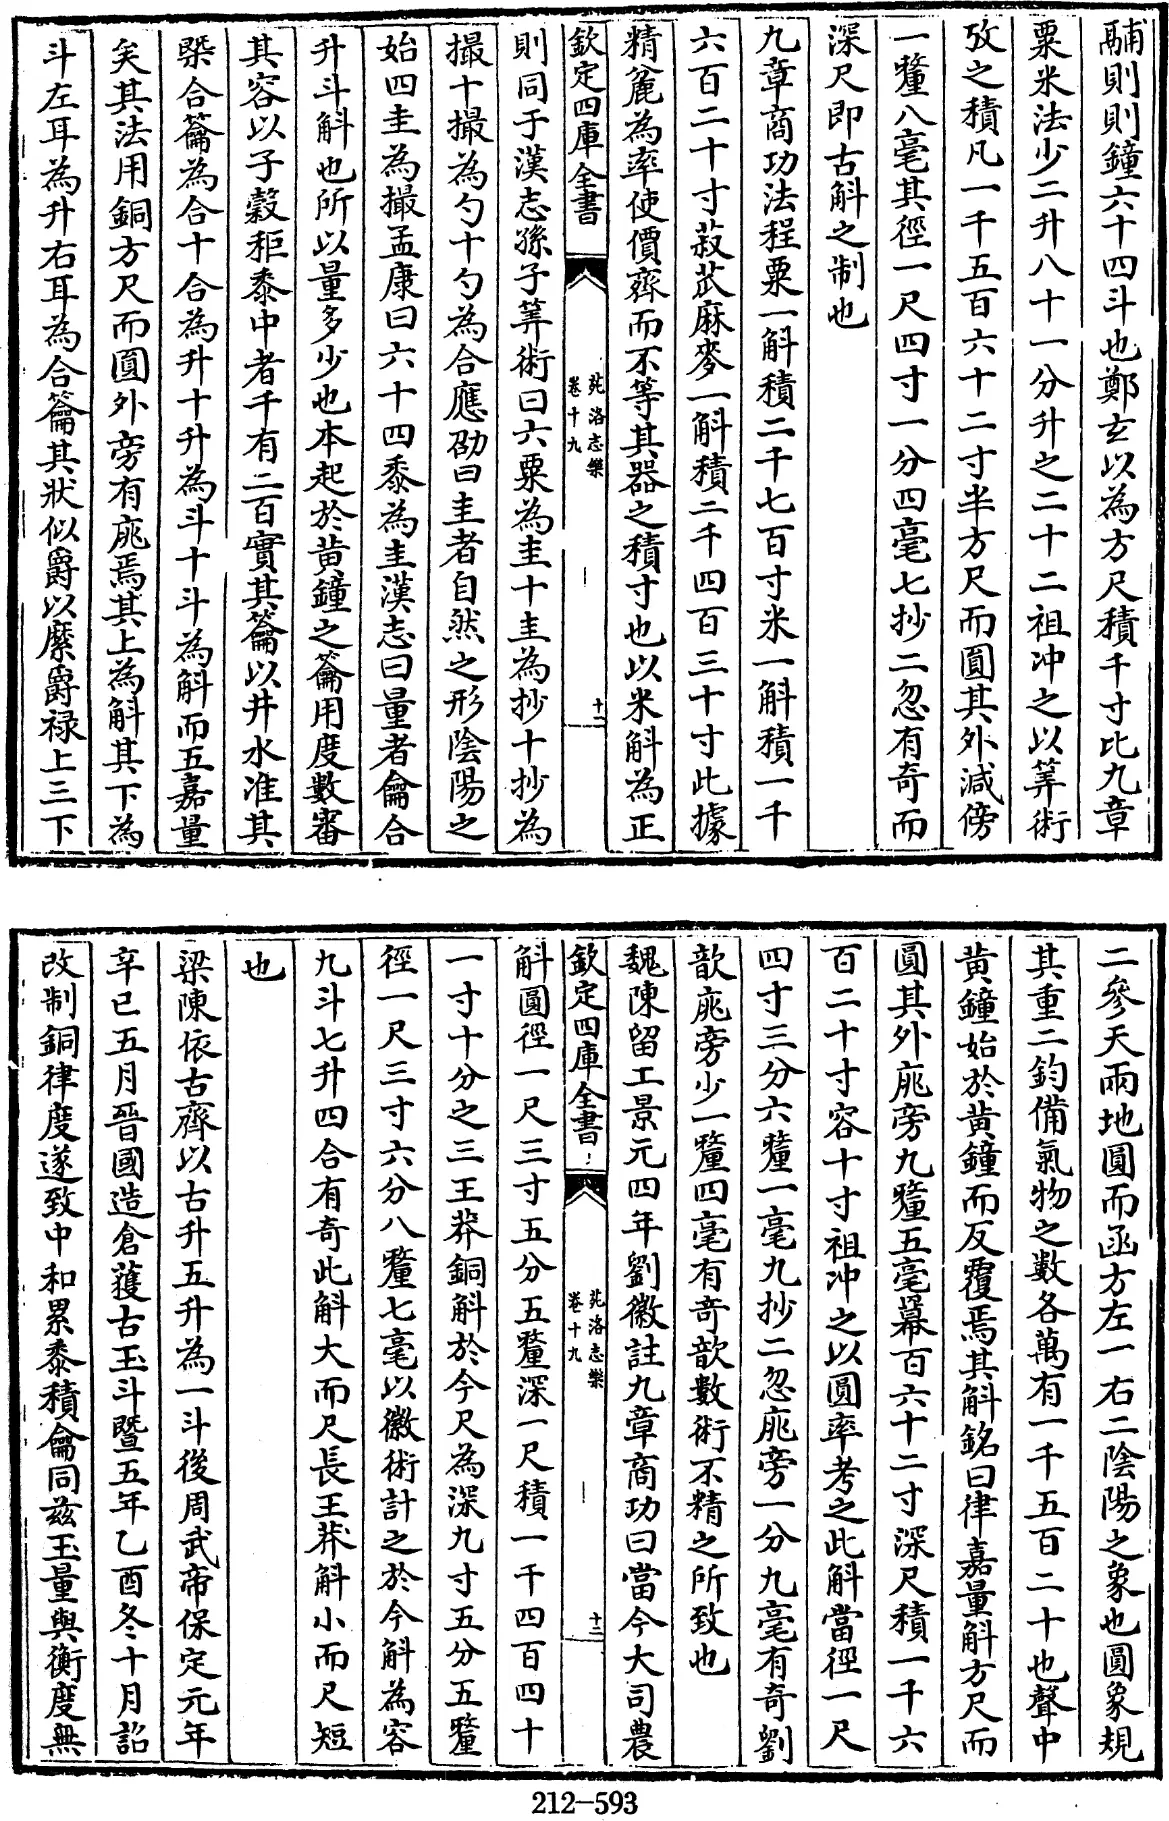 鬴則則鐘六十四斗也鄭玄以為方尺積千寸比九章
粟米法少二升八十一分升之二十二祖冲之以筭術
攷之積凡一千五百六十二寸半方尺而圓其外減傍
一釐八毫其徑一尺四寸一分四毫七抄二忽有奇而
深尺即古斛之制也
九章商功法程粟一斛積二千七百寸米一斛積一千
六百二十寸菽荅麻麥一斛積二千四百三十寸此據
精麄為率使價齊而不等其器之積寸也以米斛為正
欽定四庫全書
苑洛志樂
卷十九
十一
則同于漢志孫子筭術曰六粟為圭十圭為抄十抄為
撮十撮為勺十勺為合應劭曰圭者自然之形陰陽之
始四圭為撮孟康曰六十四黍為圭漢志曰量者龠合
升斗斛也所以量多少也本起於黄鐘之籥用度數審
其容以子穀秬黍中者千有二百實其籥以井水准其
槩合籥為合十合為升十升為斗十斗為斛而五嘉量
矣其法用銅方尺而圓外旁有庣焉其上為斛其下為
斗左耳為升右耳為合籥其狀似爵以縻爵禄上三下
二參天兩地圓而函方左一右二陰陽之象也圓象規
其重二鈞備氣物之數各萬有一千五百二十也聲中
黄鐘始於黄鐘而反覆焉其斛銘曰律嘉量斛方尺而
圓其外庣旁九釐五毫冪百六十二寸深尺積一千六
百二十寸容十寸祖冲之以圓率考之此斛當徑一尺
四寸三分六釐一毫九抄二忽庣旁一分九毫有奇劉
歆庣旁少一釐四毫有奇歆數術不精之所致也
魏陳留工景元四年劉徽註九章商功曰當今大司農
欽定四庫全書
苑洛志樂
卷十九
十二
斛圓徑一尺三寸五分五釐深一尺積一千四百四十
一寸十分之三王莽銅斛於今尺為深九寸五分五釐
徑一尺三寸六分八釐七毫以徽術計之於今斛為容
九斗七升四合有奇此斛大而尺長王莽斛小而尺短
也
梁陳依古齊以古升五升為一斗後周武帝保定元年
辛巳五月晉國造倉獲古玉斗暨五年乙酉冬十月詔
改制銅律度遂致中和累黍積龠同兹玉量與衡度無
212-593